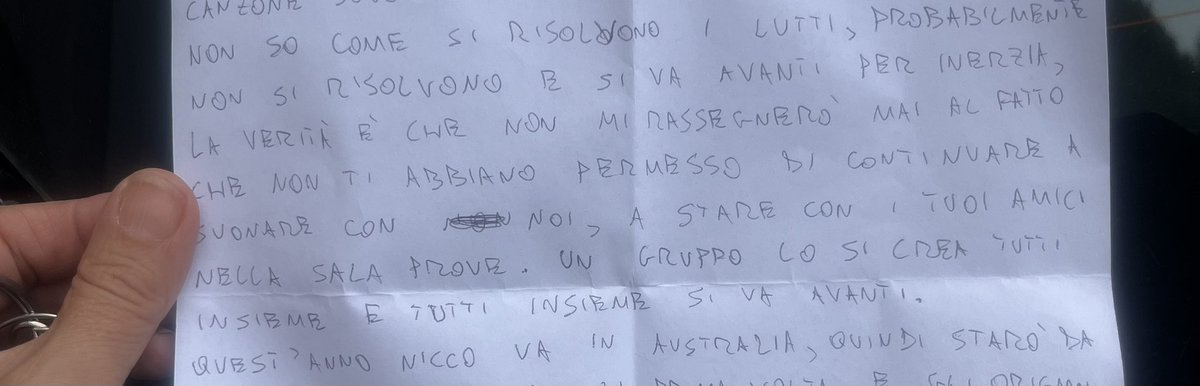 CANZONE
NON SO COME SI RISOLVONO I LUTTI, PROBABILMENTE
NON SI RISOLVONO E SI VA AVANTI PER INERZIA,
LA VERITÀ È CHE NON MI RASSEGNERÒ MAI AL FATTO
CHE NON TI ABBIANO PERMESSO DI CONTINUARE A
SUONARE CON NOI, A STARE CON I TUOI AMICI
NELLA SALA PROVE. UN GRUPPO LO SI CREA TUTTI
INSIEME E TUTTI INSIEME SI VA AVANTI.
QUEST'ANNO NICCO VA IN AUSTRALIA, QUINDI STARÒ DA
VOLTA E GLI